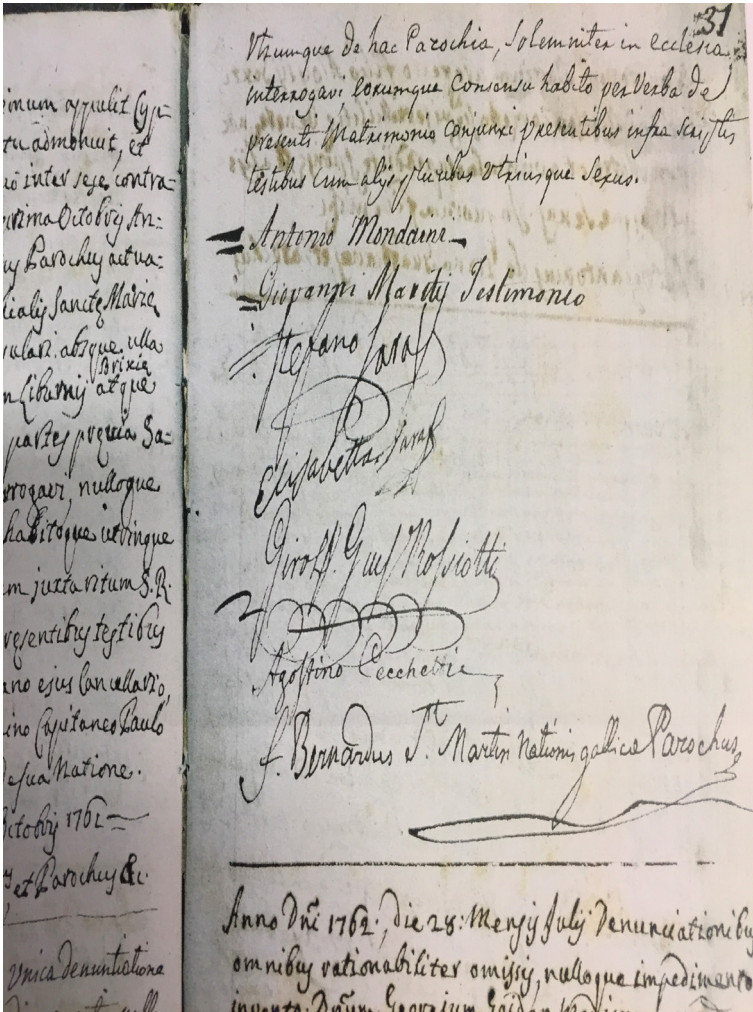 inum appulit Cyp-
tu admonuit, et
uo inter sese contra-
Octobris An-
Parochus actua-
lis Sanctę Marię
absque ulla
Brixię
Liburnij atque
partes Sa-
rrogavi, nulloque
habitoque utrinque
m juxta ritum S. R.
resentibus testibus
ano ejus Cancellario,
ino Capitaneo Paulo
de sua Natione.
Octobris 1761
et Parochus &c.
Unica denuntiatione
31
Utrumque de hac Parochia, solemniter in ecclesia
interrogavi, eorumque consensu habito per verba de
presenti Matrimonio conjunxi presentibus infra scriptis
testibus cum alijs pluribus utriusque sexus.
Antonio Mondaini
Giovanni Testimonio
Stefano Saraf
Elisabetta Saraf
Rossiotti
Agostino Cecchetti
f. Bernardus St. Martin Nationis gallicae Parochus
Anno Dni 1762, die 28: Mensis Julij Denunciationibus
omnibus rationabiliter omissis, nulloque impedimento
invento Dnum Georgium